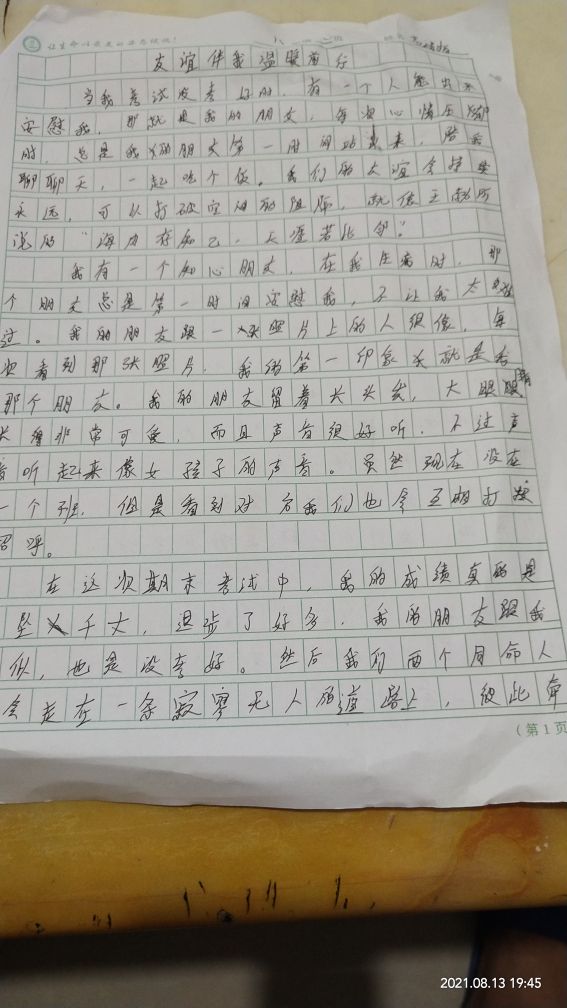 友谊伴我温暖前行
当我考试没考好时，有一个人能出来
安慰我，那就是我的朋友，每次心情压抑
时，总是我的朋友第一时间站出来，陪我
聊聊天，一起吃个饭。我们的友谊会持续
永远，可以打破空间的阻隔，就像王勃所
说的“海内存知己，天涯若比邻”
我有一个知心朋友，在我生病时，那
个朋友总是第一时间安慰我，不让我太难
过。我的朋友跟一张照片上的人很像，每
次看到那张照片，我的第一印象就是
那个朋友。我的朋友留着长头发，大眼睛
长得非常可爱，而且声音很好听，不过声
音听起来像女孩子的声音。虽然现在没在
一个班，但是看到对方我们也会互相打
招呼。
在这次期末考试中，我的成绩真的是
坠千丈，退步了好多，我的朋友跟我
似，也是没考好。然后我们两个同命人
会走在一条寂寥无人的道路上，彼此
（第1页
2021.08.13 19:45